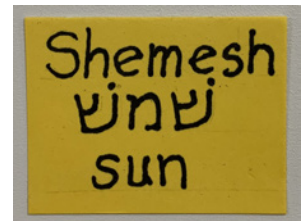 Shemesh
שׁמשׁ
sun